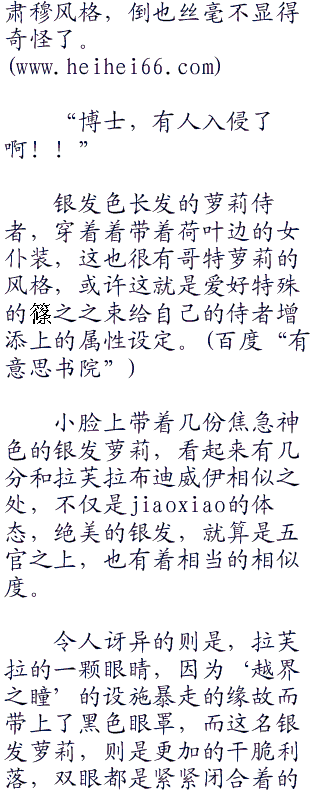 肃穆风格，倒也丝毫不显得
奇怪了。
(www.heihei66.com)
“博士，有人入侵了
啊！！”
银发色长发的萝莉侍
者，穿着着带着荷叶边的女
仆装，这也很有哥特萝莉的
风格，或许这就是爱好特殊
的篠之之束给自己的侍者增
添上的属性设定。(百度“有
意思书院”)
小脸上带着几份焦急神
色的银发萝莉，看起来有几
分和拉芙拉布迪威伊相似之
处，不仅是jiaoxiao的体
态，绝美的银发，就算是五
官之上，也有着相当的相似
度。
令人讶异的则是，拉芙
拉的一颗眼睛，因为‘越界
之瞳’的设施暴走的缘故而
带上了黑色眼罩，而这名银
发萝莉，则是更加的干脆利
落，双眼都是紧紧闭合着的